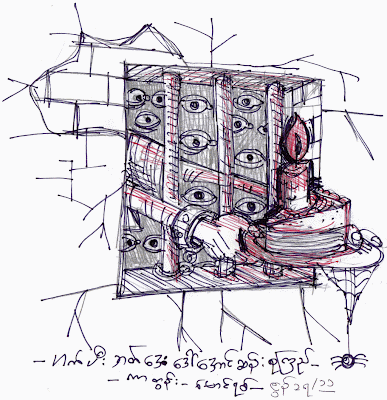 - ဟက်ပီး ဘတ်ဒေး ဒေါ်အောင်ဆန်းစုကြည် -
- ကာတွန်း - မောင်ရစ် - ဇွန် ၁၉/၁၁